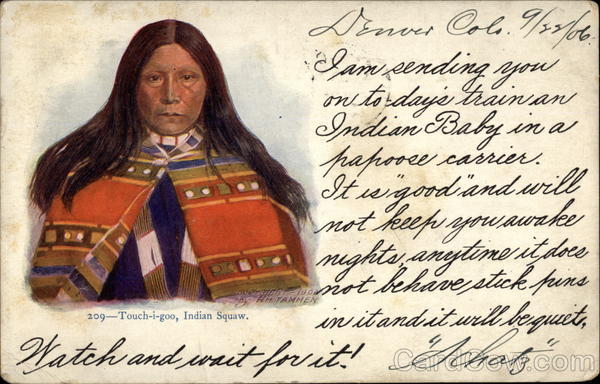 Denver Colo. 9/22/06
I am sending you
on to-day's train an
Indian Baby in a
papoose carrier.
It is "good" and will
not keep you awake
nights, anytime it does
not behave, stick pins
in it and it will be quiet.
BY H.H. TAMMEN
209—Touch-i-goo, Indian Squaw.
Watch and wait for it!
CardCow.com